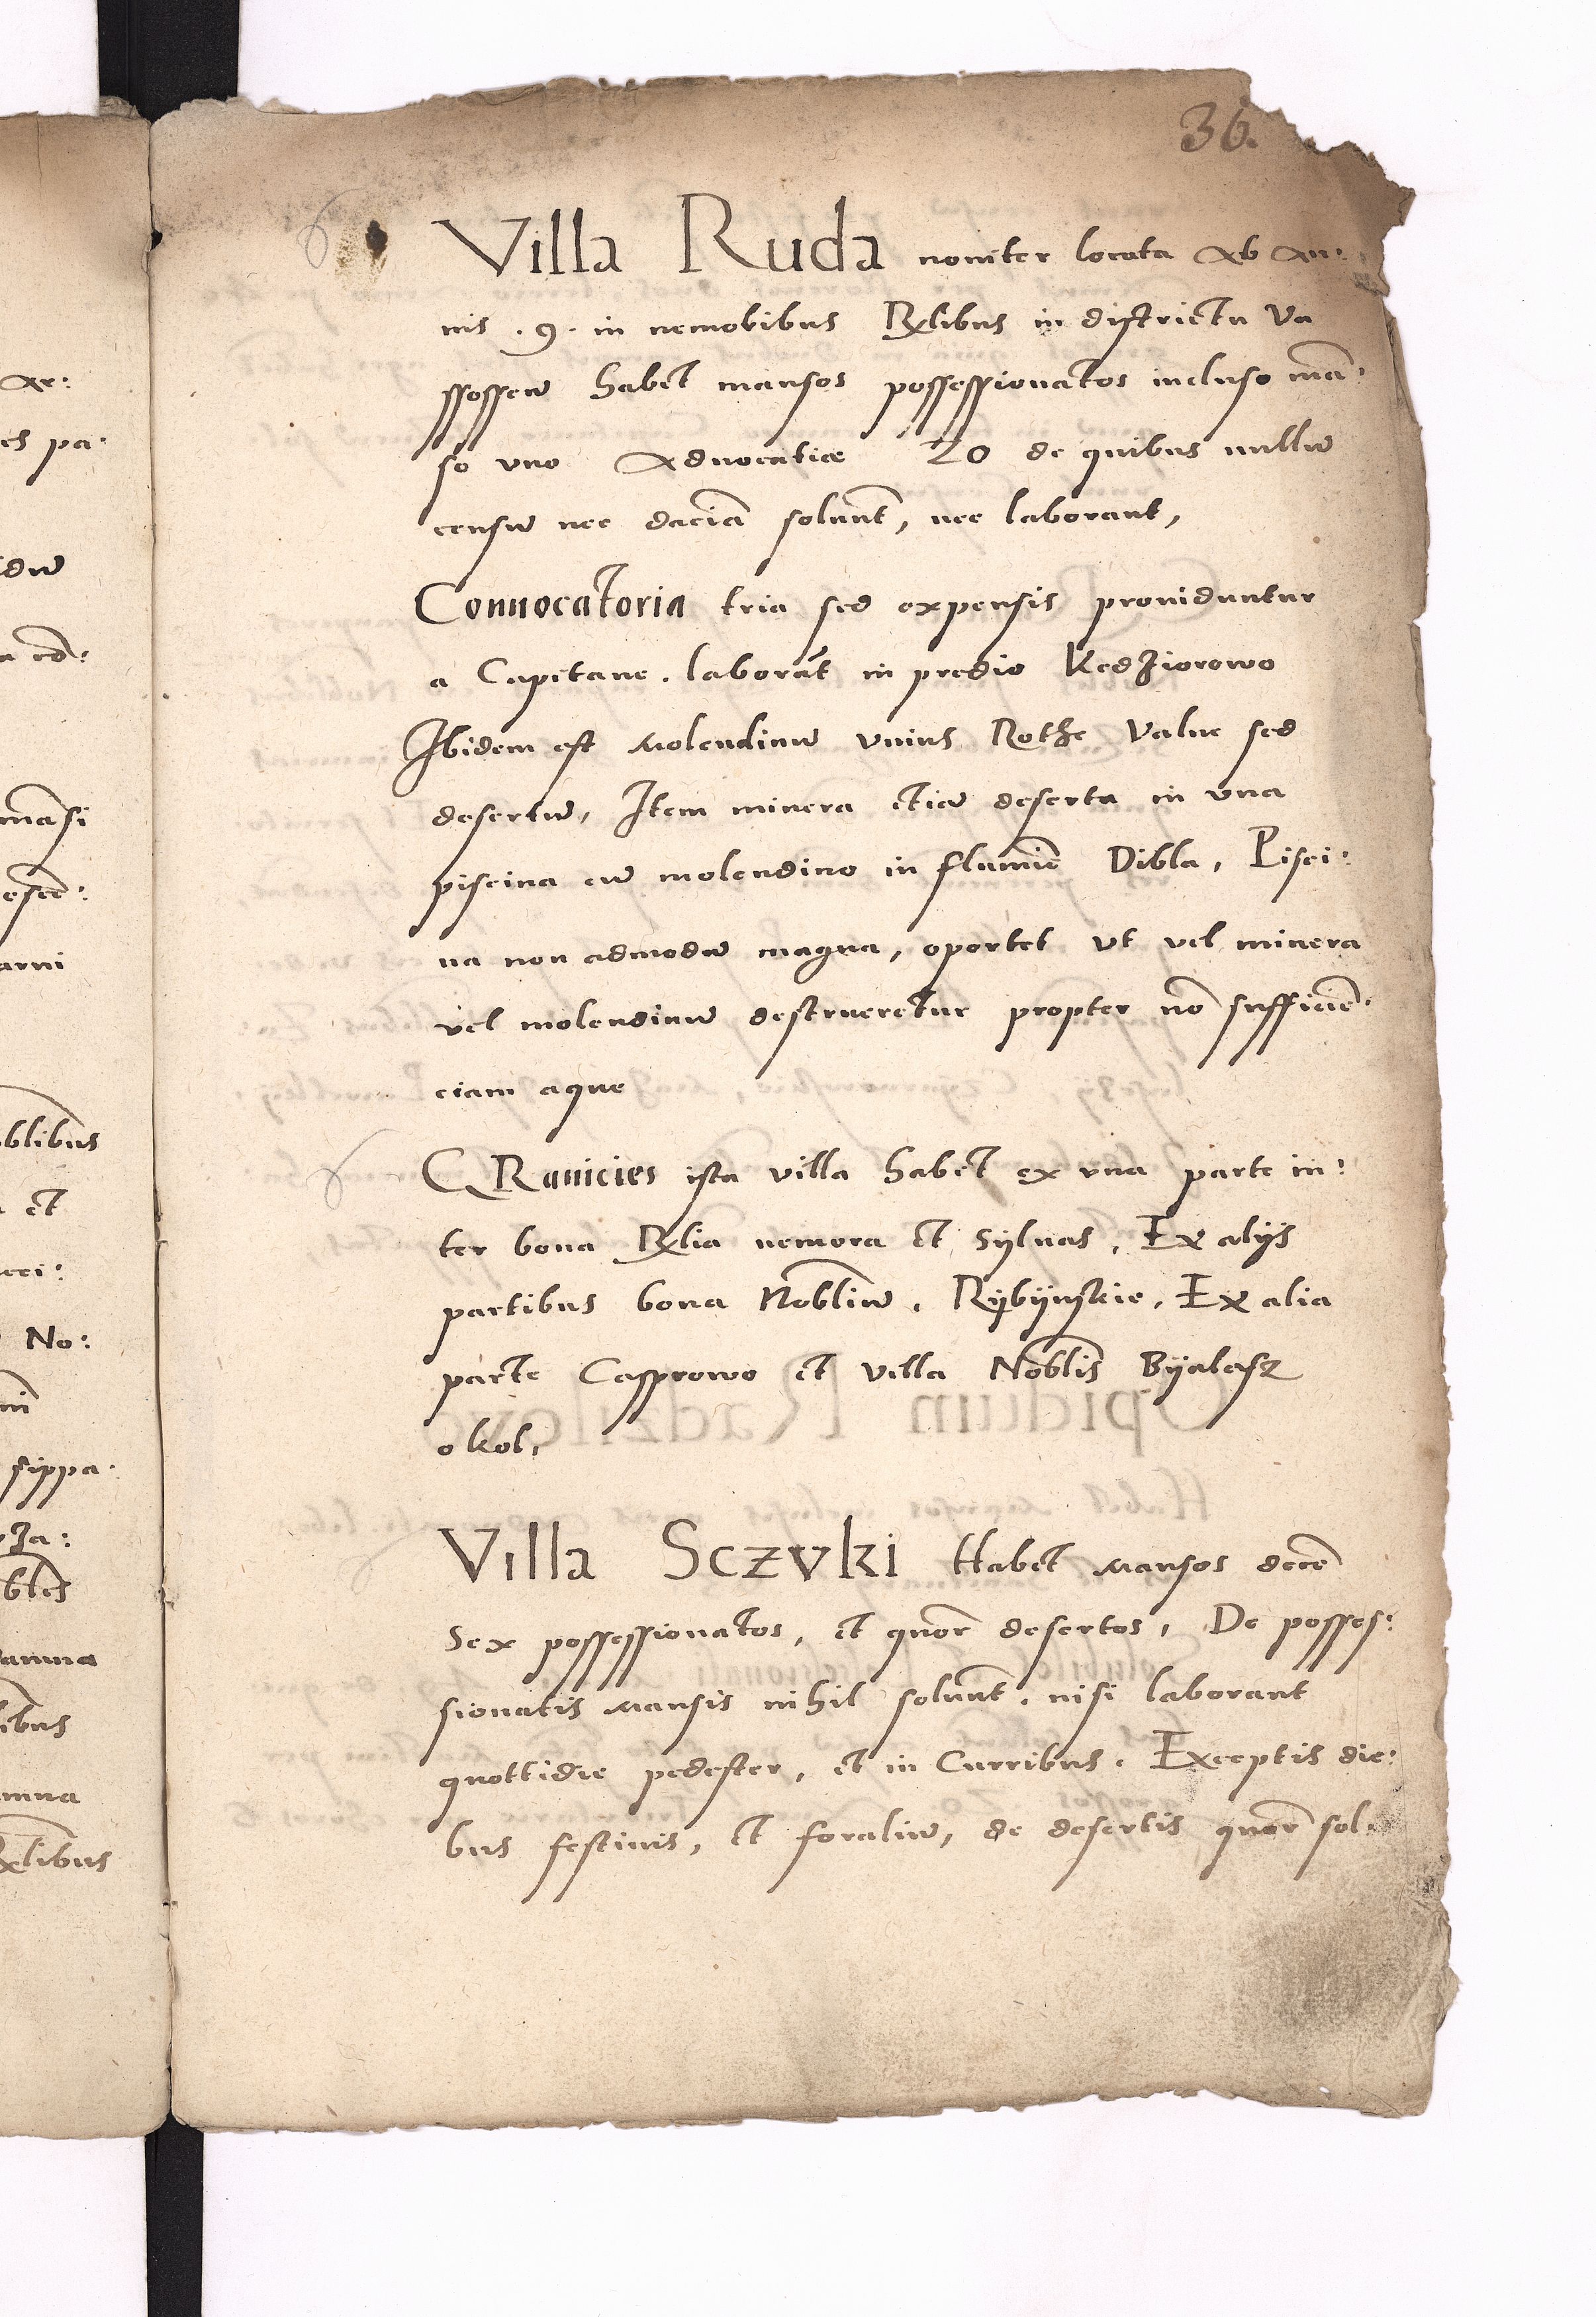 36.
Villa Ruda noviter locata ab an:
nis . 9 . in nemobibus Rxlibus in districtu Va
ssossew habet mansos possessionatos incluso mā:
so vno advocatiae 20 de quibus nullū
censū nec daciā solunt, nec laborant,
Conuocatoria tria sed expensis prouiduntur
a Capitane . laborāt in predio Kedziorowo
Ibidem est Molendinū vnius Rothe Value sed
desertū, Item minera etiā deserta in vna
piscina cū molendino in flumīe Dibla, Pisci:
na non admodū magna, oportet vt vel minera
vel molendinū destrueretur propter nō sufficiē:
ciam aque
GRanicies ista villa habet ex vna parte in:
ter bona Rxlia nemora et Syluas, Ex alijs
partibus bona Nobliū . Rybijnskie, Ex alia
parte Casprowo et villa Noblis Byalasz
okol,
Villa Sczvki Habet Mansos decē
Sex possessionatos, et quor desertos, De posses:
sionatis Mansis nihil solunt . nisi laborant
quottidie pedester, et in Curribus . Exceptis die:
bus festiuis, et foraliū, de desertis quor sol: